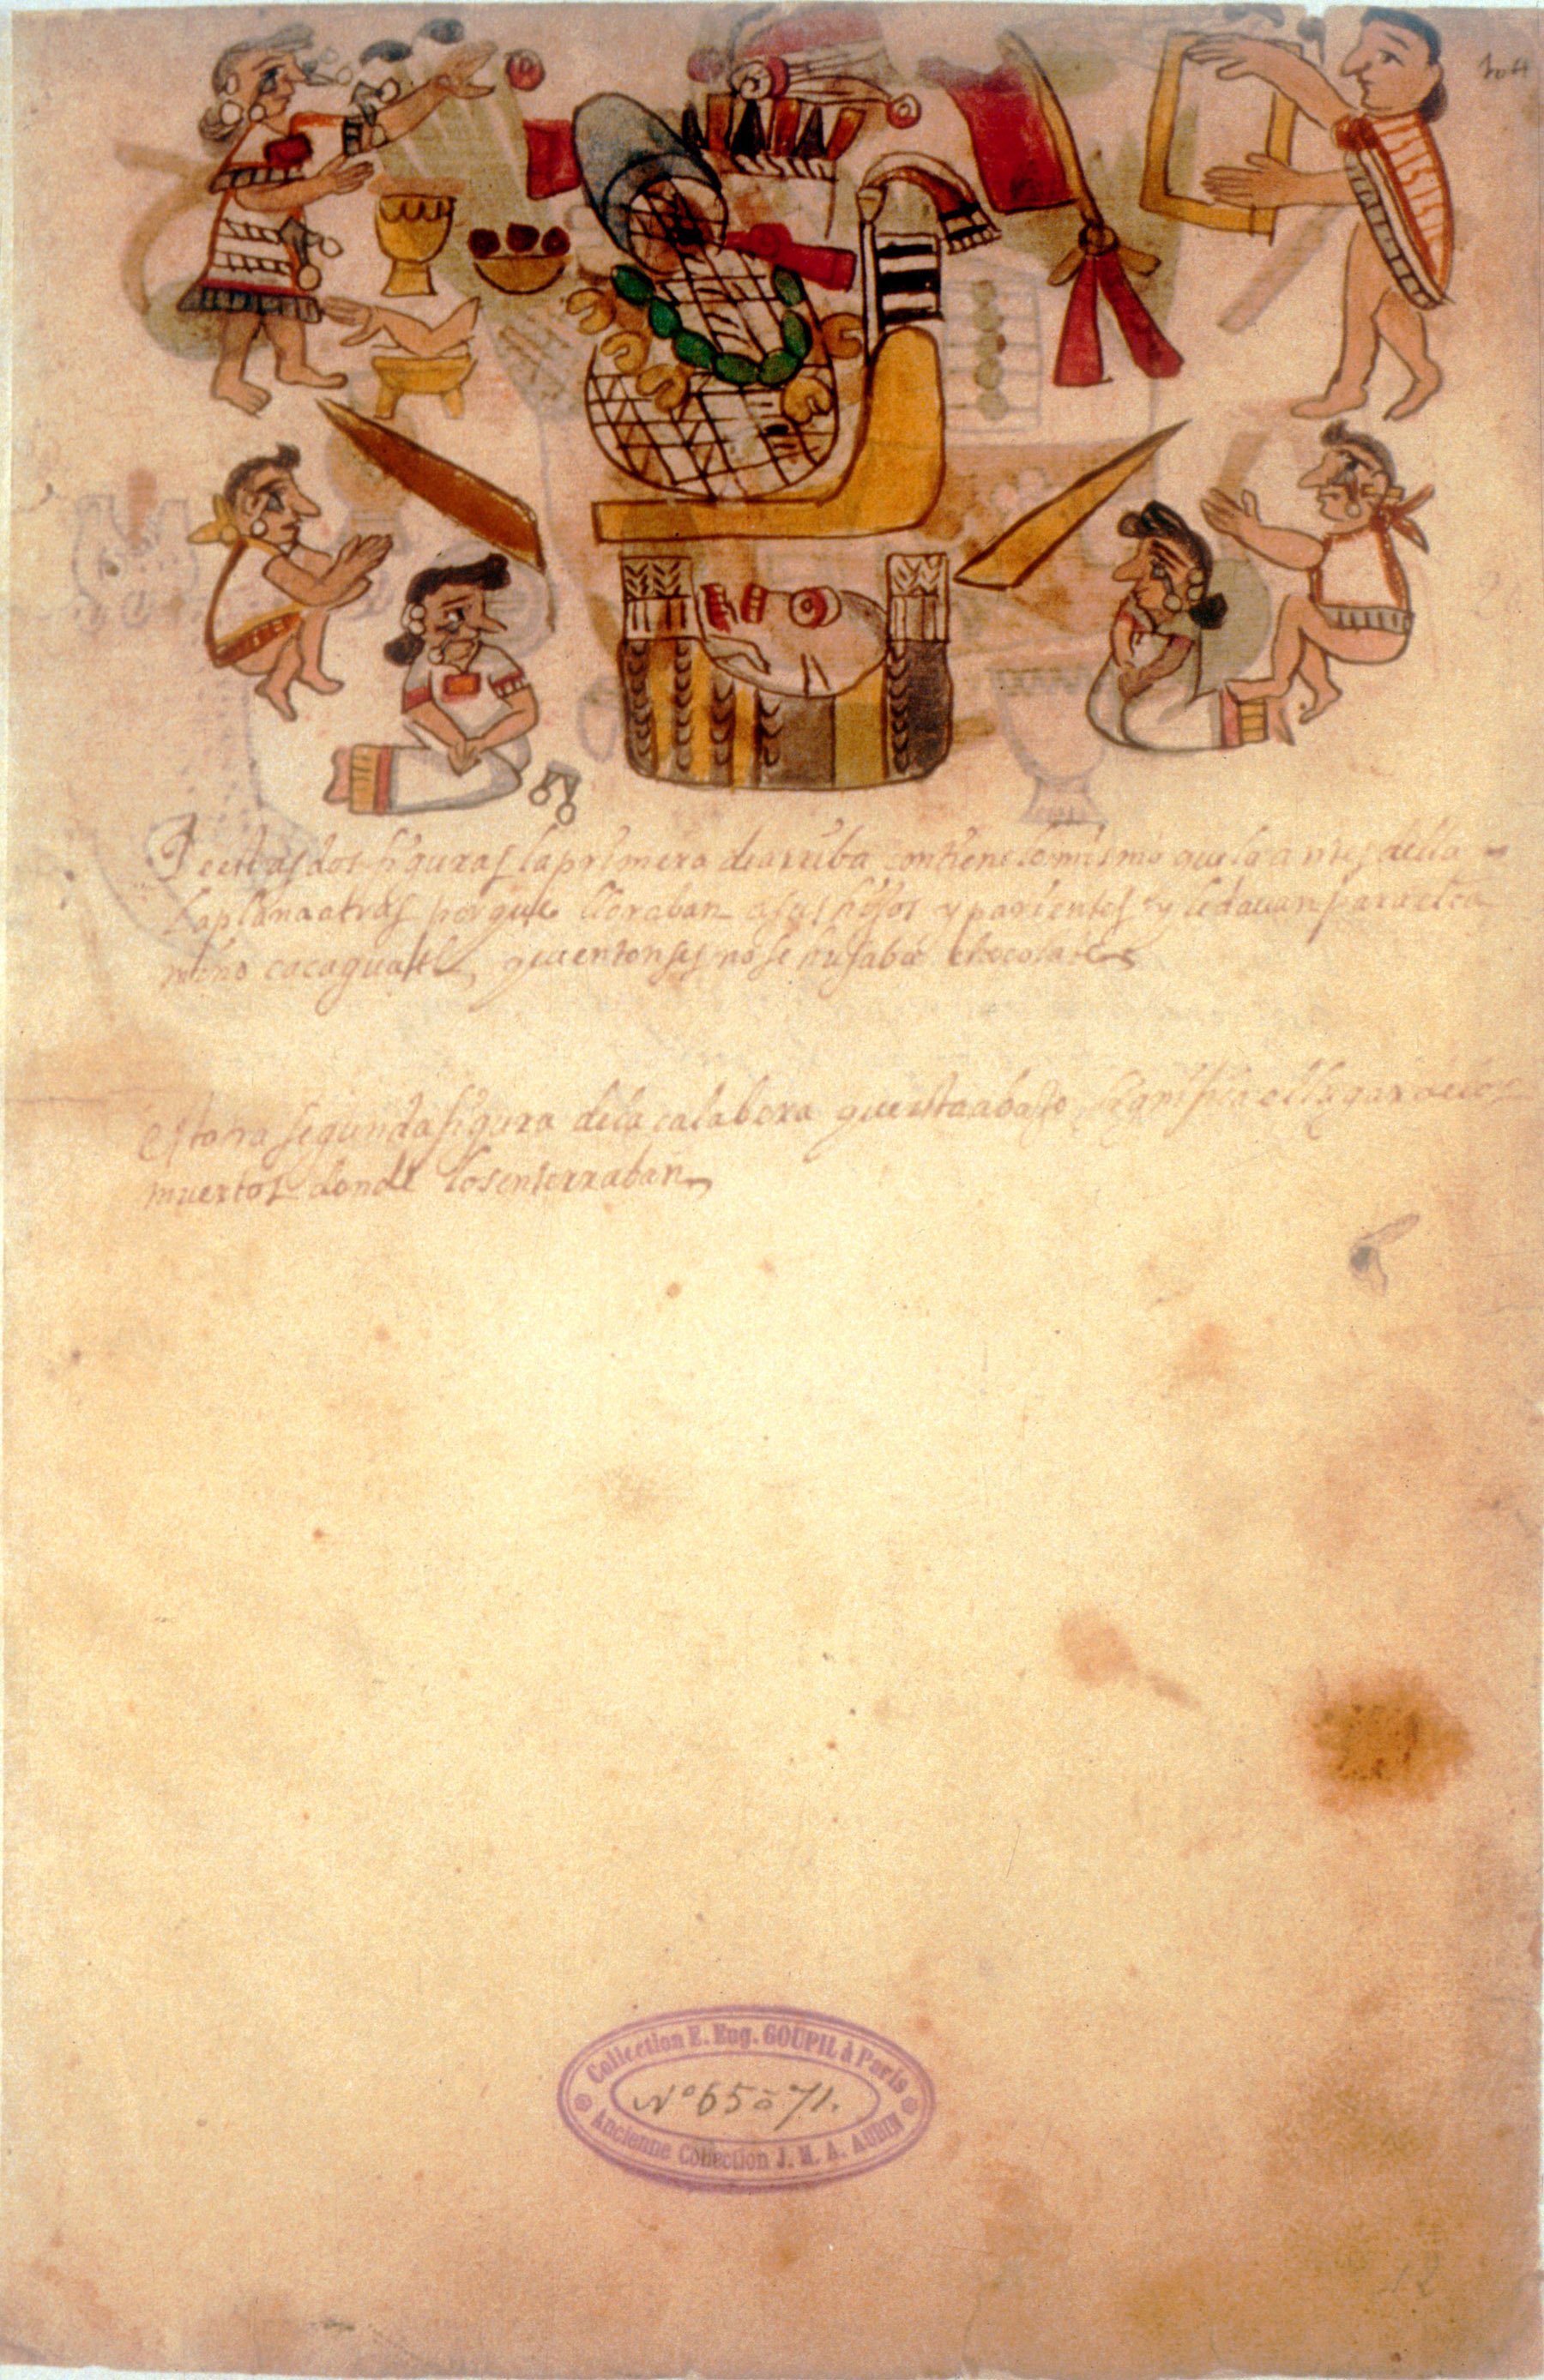 104
De estas dos figuras la primera de arriba contiene lo mismo que la antes della
la plana atras porque lloraban a sus hijos y parientes y le dauan para el ca
mino cacaguatl, que entonses no se husaba chocolate
esta otra segunda figura de la calabera que esta abajo significa el lugar de los
muertos donde los enterraban
Collection E. Eug. GOUPIL à Paris
N° 65 à 71.
Ancienne Collection J. M. A. AUBIN
12